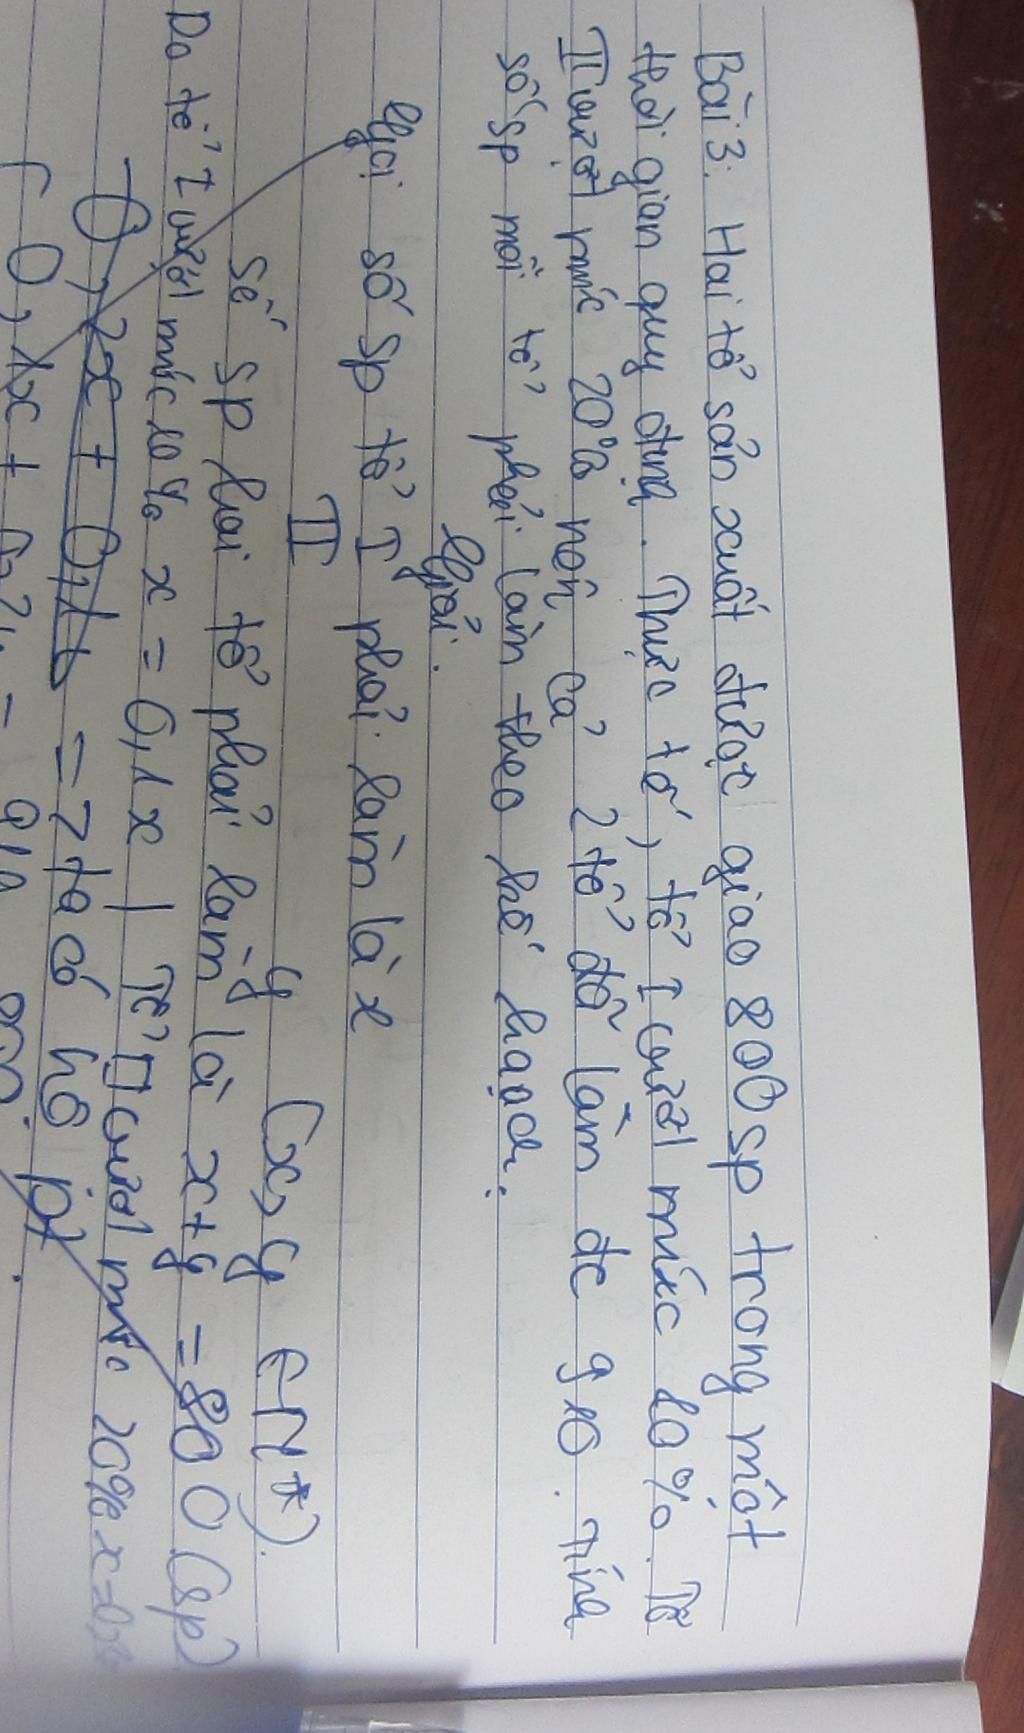 Bài 3. Hai tổ sản xuất được giao 800 sp trong một
thời gian quy định. Thực tế, tổ I vượt mức 10%. Tổ
II vượt mức 20% nên cả 2 tổ đã làm đc 910. Tính
số sp mỗi tổ phải làm theo kế hoạch.
Giải.
Gọi số sp tổ I phải làm là x
II y (x, y ∈ N*).
Số sp hai tổ phải làm là x+y = 800 (sp)
Do tổ I vượt mức 10% x = 0,1x | Tổ II vượt mức 20% x =
=> ta có hệ pt.
0,1x + = 910